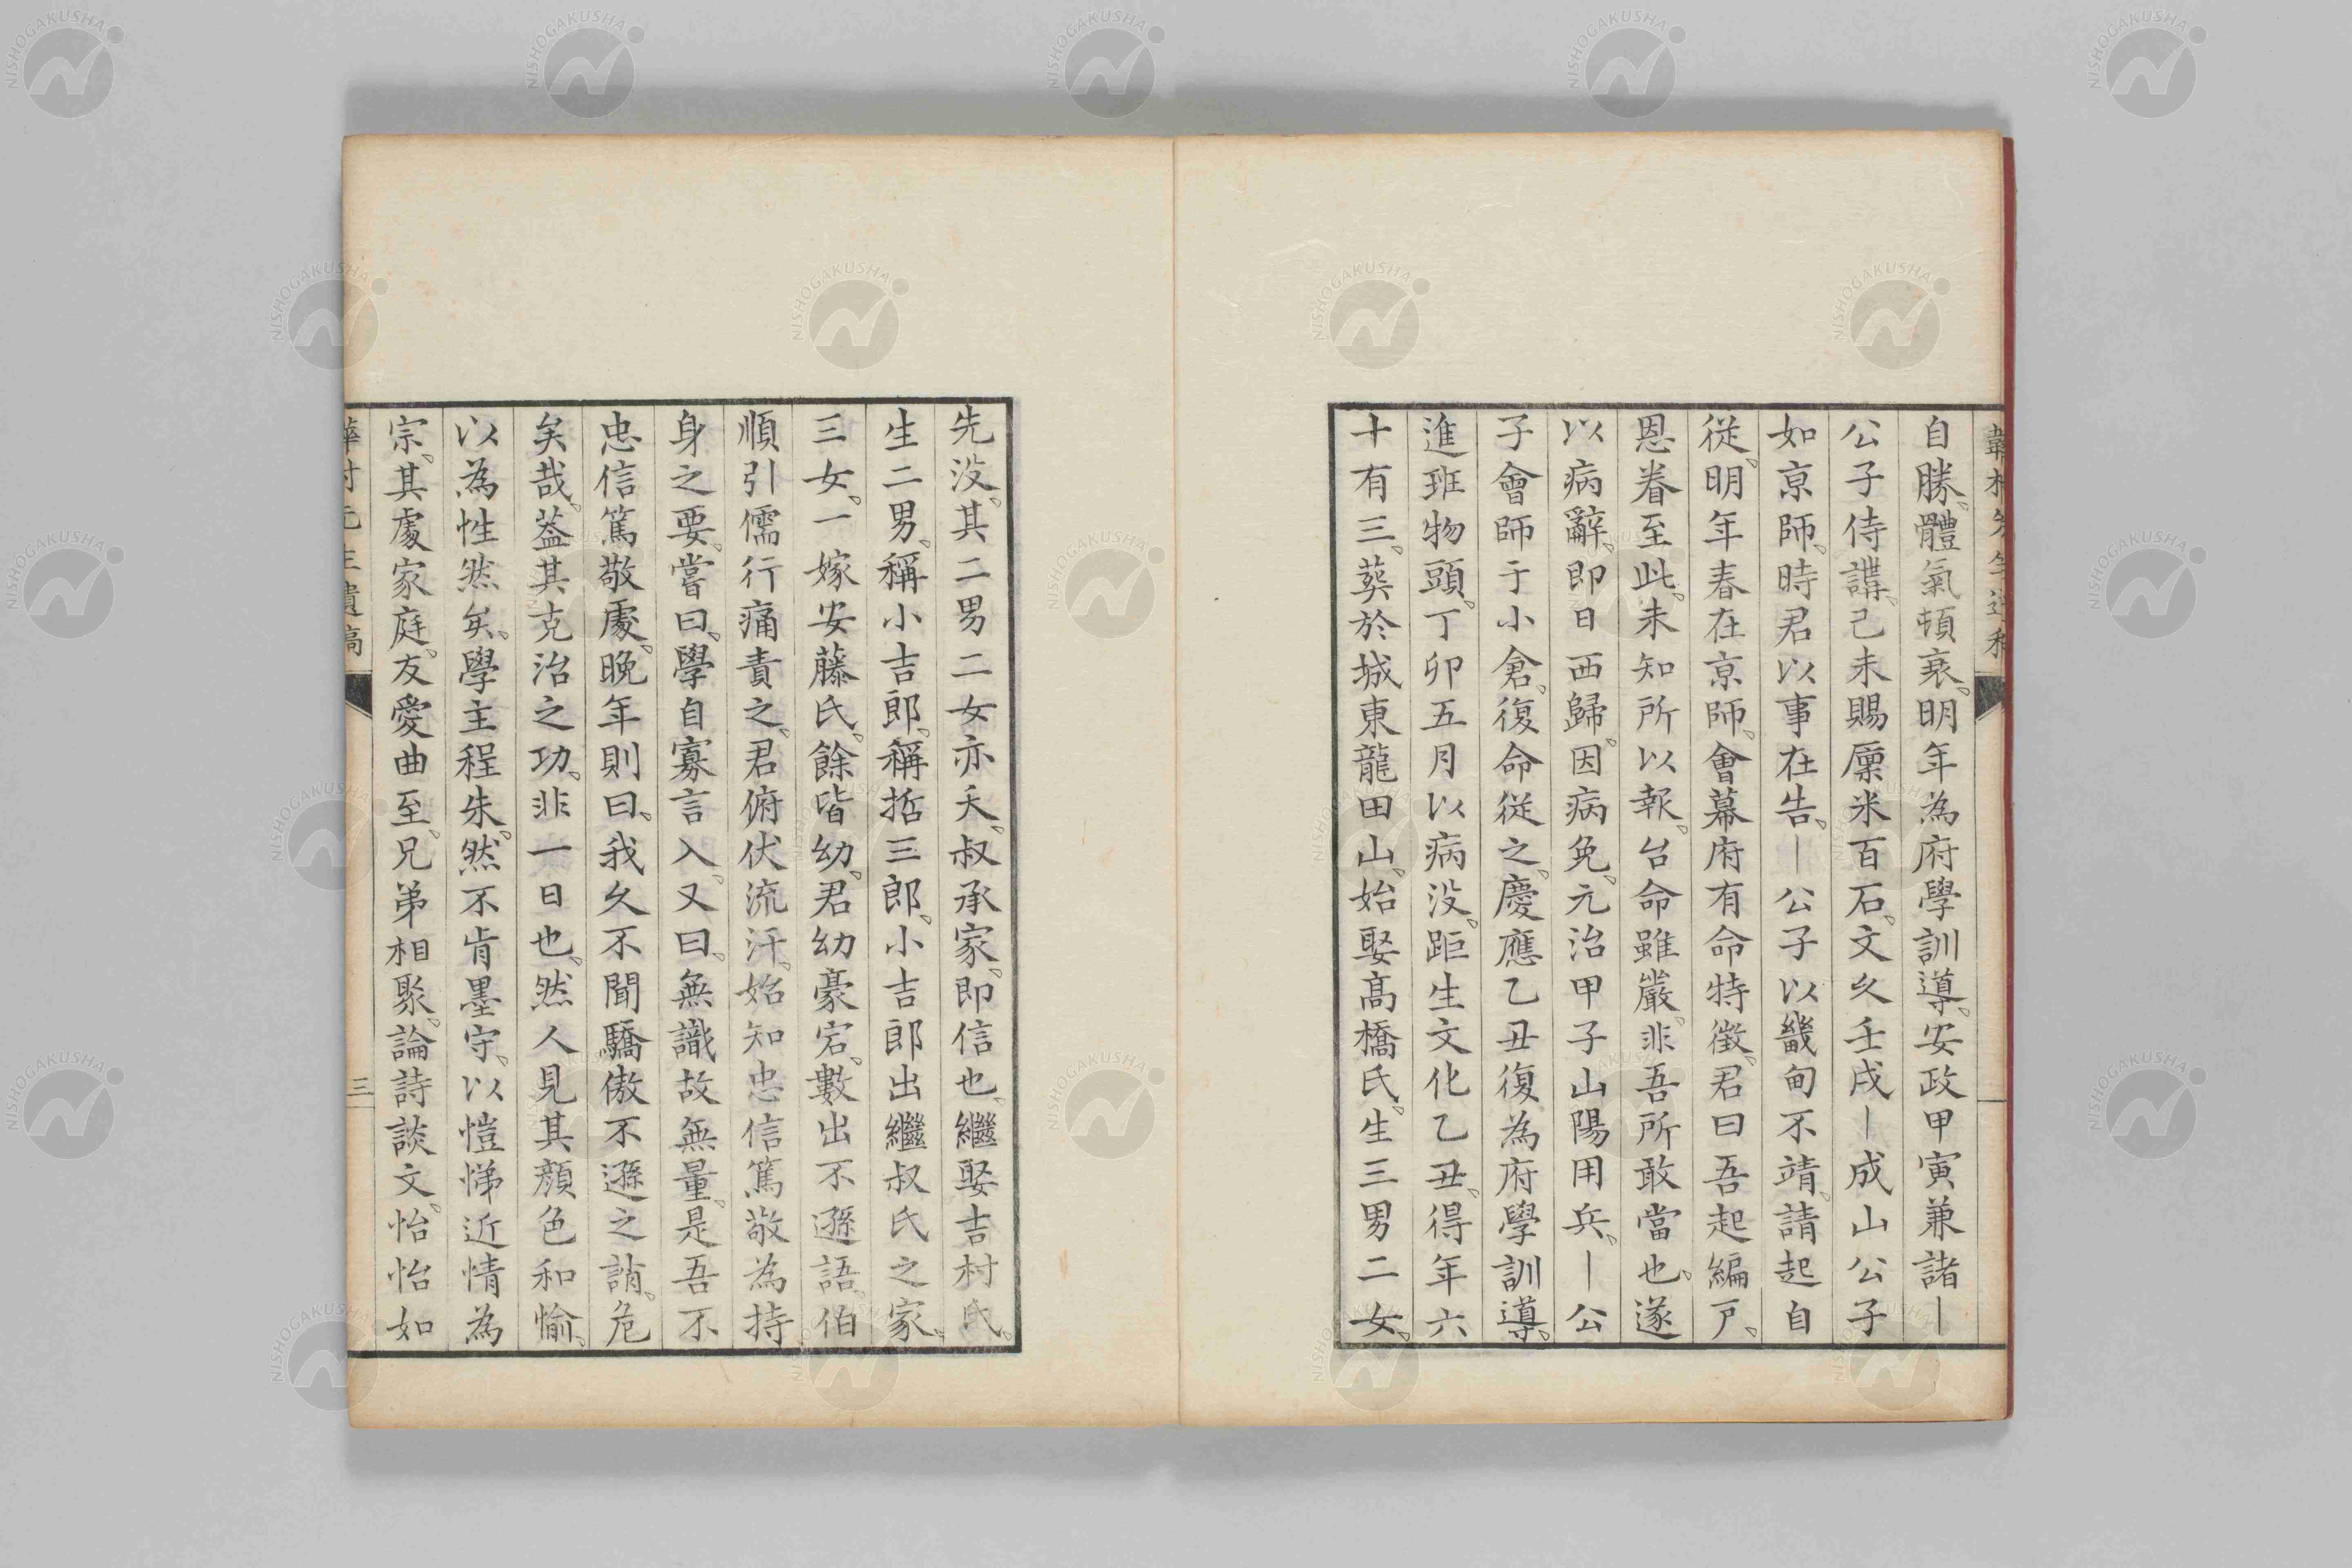 自勝。體氣頓衰。明年為府學訓導。安政甲寅兼諸｜
公子侍講。己未賜廩米百石。文久壬戌｜成山公子
如京師。時君以事在告。｜公子以畿甸不靖。請起自
從。明年春在京師。會幕府有命特徵。君曰吾起編戸。
恩眷至此。未知所以報。台命雖嚴。非吾所敢當也。遂
以病辭。即日西歸。因病免。元治甲子山陽用兵。｜公
子會師于小倉。復命從之。慶應乙丑復為府學訓導。
進班物頭。丁卯五月以病没。距生文化乙丑。得年六
十有三。葬於城東龍田山。始娶高橋氏。生三男二女。
先没。其二男二女亦夭。叔承家。即信也。繼娶吉村氏。
生二男。稱小吉郎。稱哲三郎。小吉郎出繼叔氏之家。
三女。一嫁安藤氏。餘皆幼。君幼豪宕。數出不遜語。伯
順引儒行痛責之。君俯伏流汗。始知忠信篤敬為持
身之要。嘗曰。學自寡言入。又曰。無識故無量。是吾不
忠信篤敬處。晚年則曰。我久不聞驕傲不遜之誚。危
矣哉。葢其克治之功。非一日也。然人見其顏色和愉。
以為性然矣。學主程朱。然不肯墨守。以愷悌近情為
宗。其處家庭。友愛曲至。兄弟相聚。論詩談文。怡怡如
三
NISHOGAKUSHA